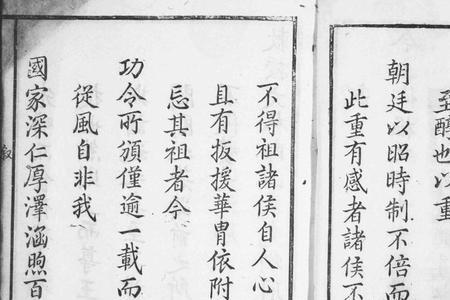 至醇也以重
朝廷以昭時制不倍而
此重有感者諸侯不
不得祖諸侯自人心
且有扳援華胄依附
忘其祖者今
功令所頒僅逾一載而
從風自非我
國家深仁厚澤涵煦百